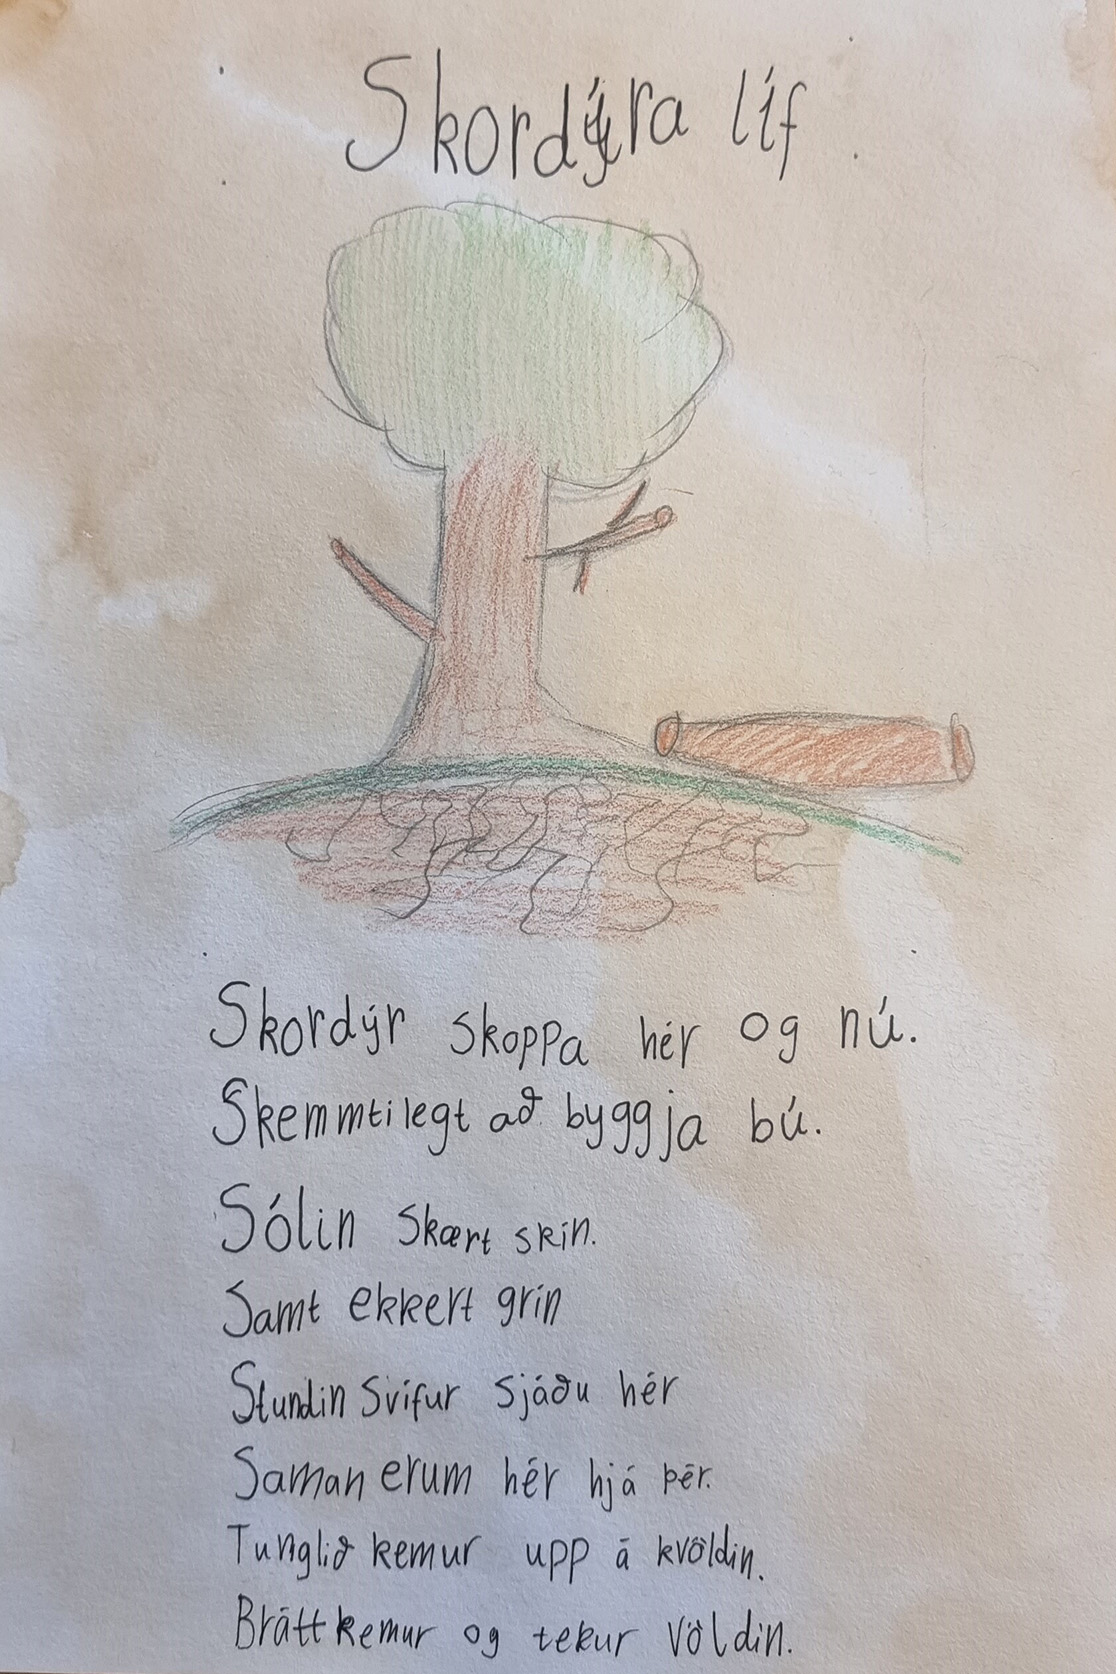 Skordýra líf
Skordýr skoppa hér og nú.
Skemmtilegt að byggja bú.
Sólin skært skín.
Samt ekkert grín
Stundin svífur sjáðu hér
Saman erum hér hjá þér.
Tunglið kemur upp á kvöldin.
Brátt kemur og tekur völdin.